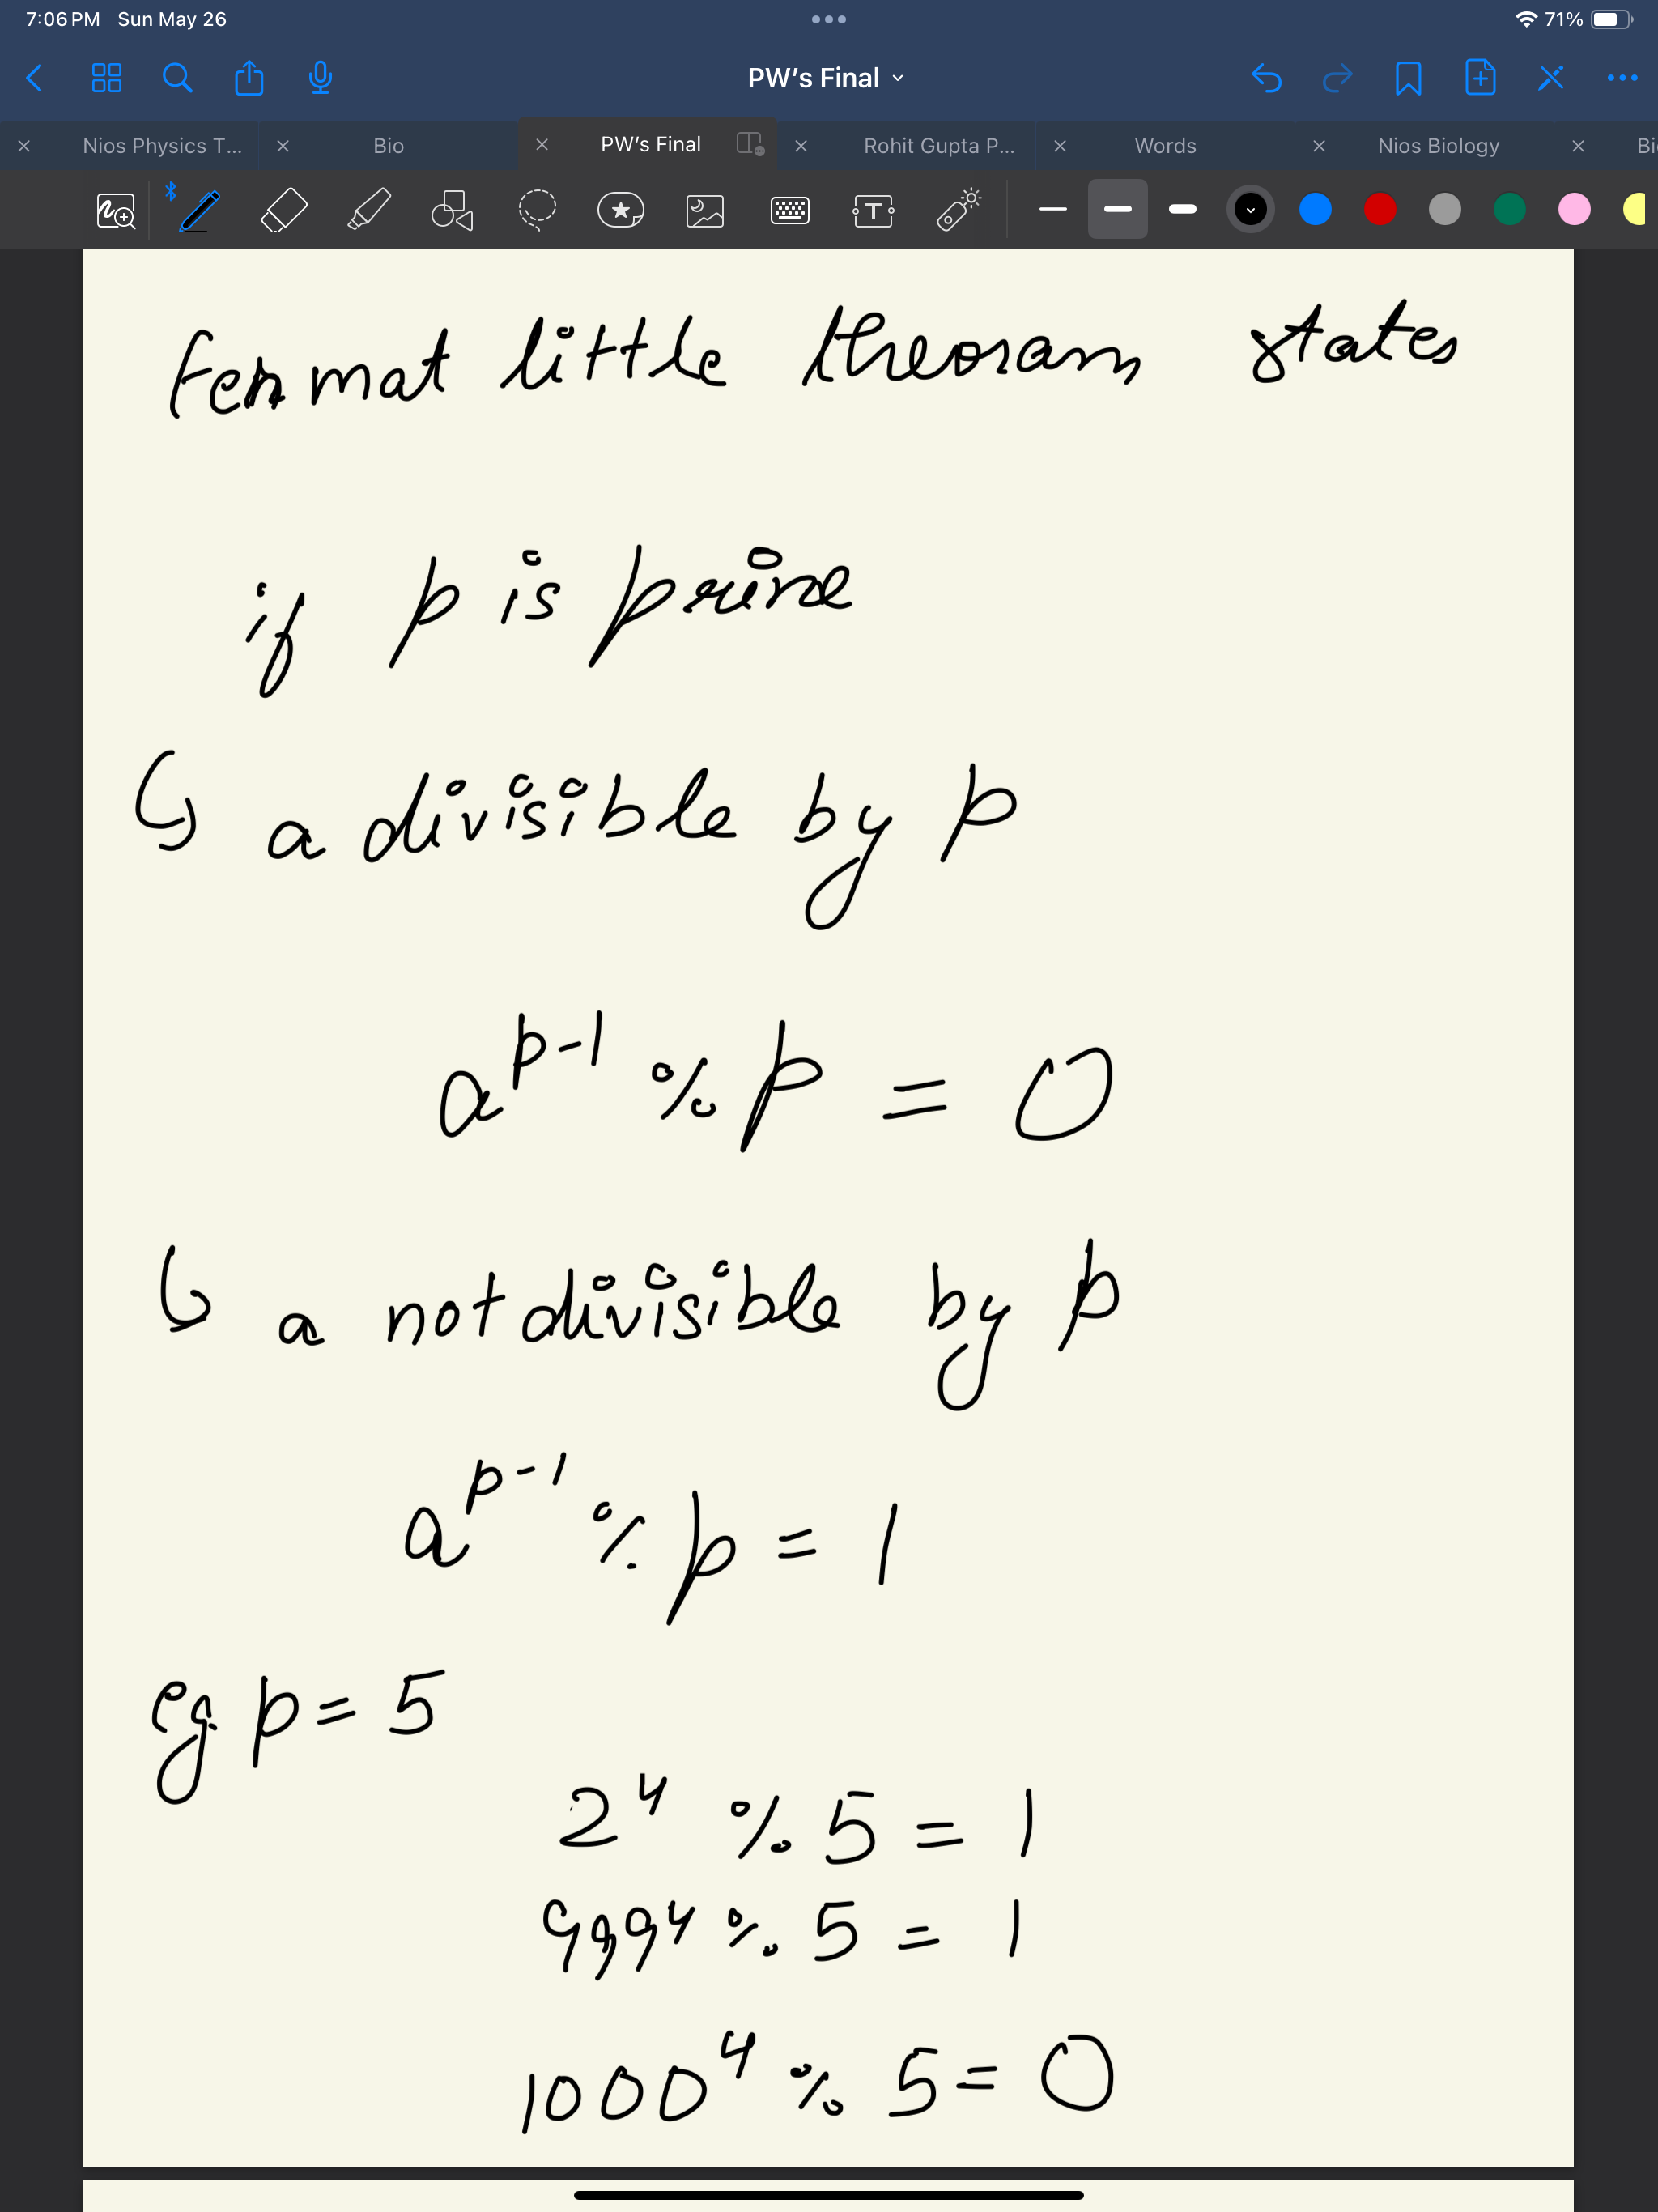 7:06 PM Sun May 26
71%
PW's Final
Nios Physics T...
Bio
PW's Final
Rohit Gupta P...
Words
Nios Biology
Bi
T
fermat little theoram states
if p is prime
a divisible by p
a^{p-1} % p = 0
a not divisible by p
a^{p-1} % p = 1
eg p = 5
2^4 % 5 = 1
999^4 % 5 = 1
1000^4 % 5 = 0